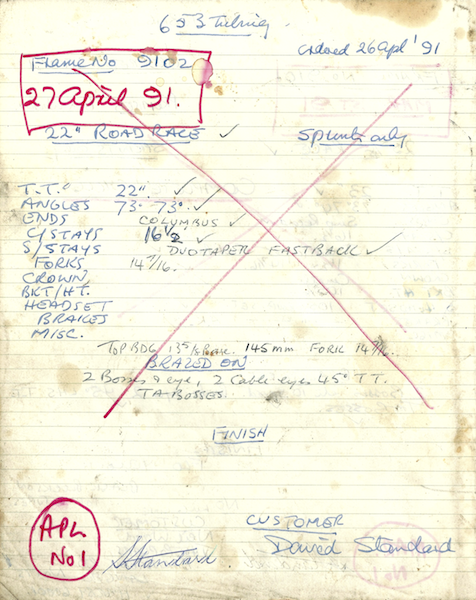 653 Tubing
Ordered 26 Apl '91
Frame No 9102
27 April 91.
22" ROAD RACE ✓
Sprints only
T.T." 22" ✓
ANGLES 73° 73° ✓
ENDS COLUMBUS ✓
C/STAYS 16 1/2 ✓
S/STAYS DUOTAPER FASTBACK ✓
FORKS 14 7/16.
CROWN
BKT/HT.
HEADSET
BRAKES
MISC.
TOP BDG 13 5/8 145mm FORK 14 7/16.
BRAZED ON
2 Bosses & eye, 2 Cable eyes 45° T.T.
TA BOSSES
FINISH
APL
No 1
CUSTOMER
Standard
David Standard